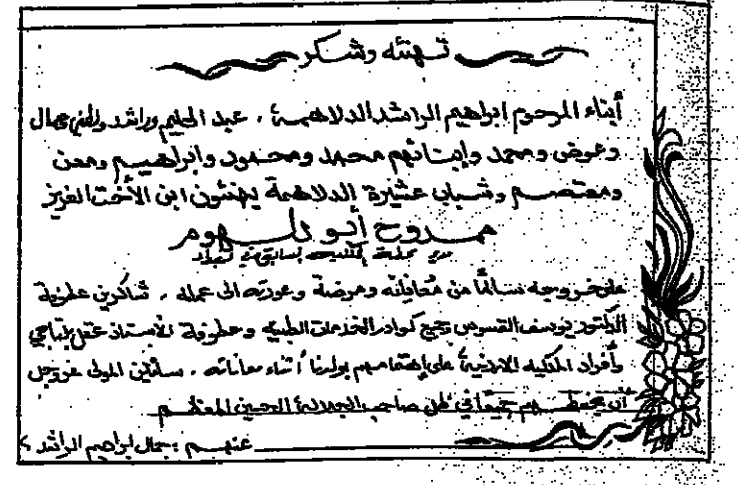 تهنئه وشكر
أبناء المرحوم ابراهيم الراشد الدلاهمة ، عبد الحليم وراشد وجمال
وعوض ومحمد وابنائهم محمد ومحمود وابراهيم ومعن
ومعتصم وشباب عشيرة الدلاهمة يهنئون ابن الأخت العزيز
ممدوح أبو دلهوم
على خروجه سالماً من وعودته الى عمله ، شاكرين عطوفة
الدكتور يوسف القسوس وجميع كوادر الخدمات الطبيه وعطوفة الأستاذ عقل بلتاجي
وأفراد الملكيه الاردنية على اهتمامهم بولدنا أثناء معاناته ، سائلين المولى عز وجل
أن يحفظهم جميعاً في ظل صاحب الجلالة الحسين المعظم
عنهم : جمال ابراهيم الراشد